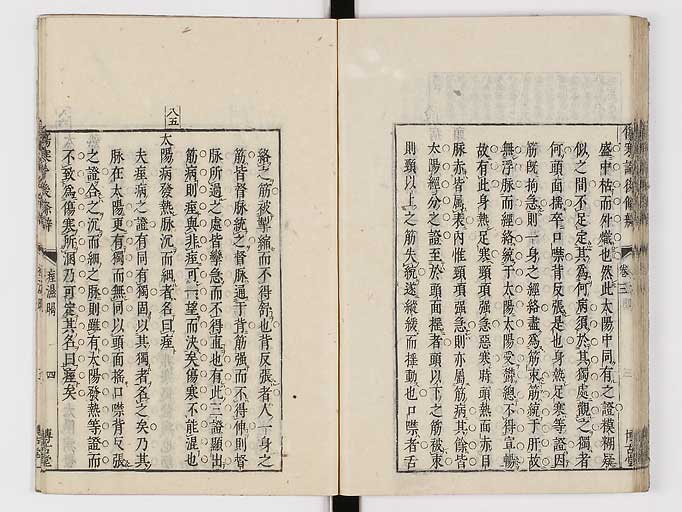 盛中枯而外熾也然此太陽中同有之證模糊疑
似之間不足定其爲何病須於其獨處觀之獨者
何頭面搖卒口噤背反張是也身熱足寒等證因
筋既拘急則一身之經絡盡爲筋束筋統于肝故
無浮脉而經絡統于太陽太陽受鬱總不得宣暢
故有此身熱足寒頸項強急惡寒時頭熱面赤目
脉赤皆屬表內惟頸項強急則亦屬筋病其餘皆
太陽經分之證至於頭面搖者頭以下之筋被束
則頸以上之筋失統遂縱緩而揺動也口噤者舌
卷三
絡之筋被攣縮而不得舒也背反張者人一身之
筋皆督脉統之督脉過于背筋強而不得伸則督
脉所過之處皆攣急而不得直也有此三證顯出
筋病則痙與非痙可一望而決矣傷寒不能混也
八五
太陽病發熱脉沉而細者名曰痙
夫痙病之證有同有獨固以其獨者名之矣乃其
脉在太陽更有獨而無同以頭面搖口噤背反張
之證合之沉而細之脉則雖有太陽發熱等證而
不致爲傷寒所溷乃可定其名曰痙矣
痙濕暍
四